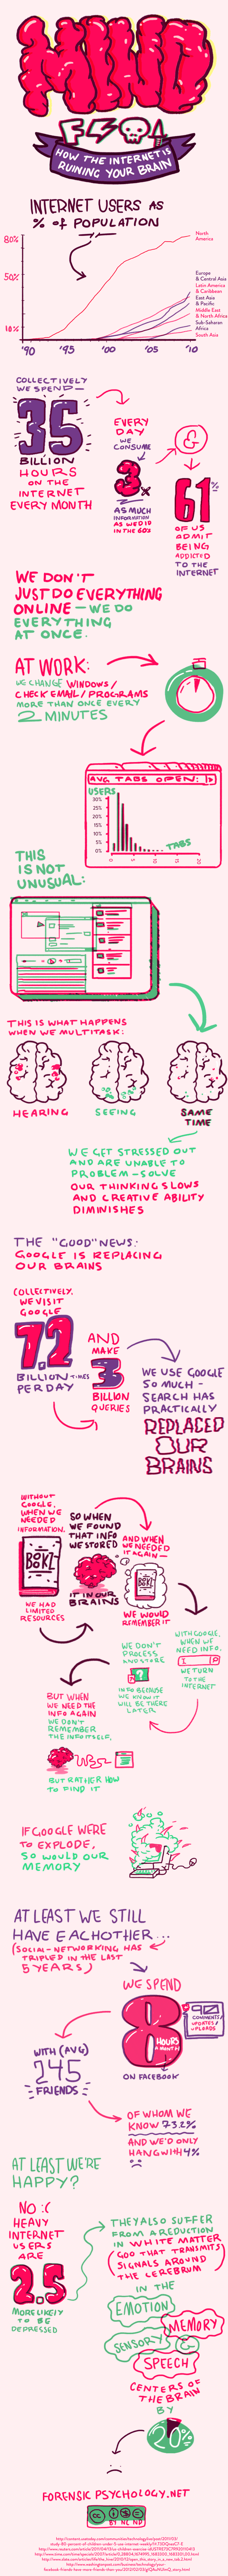 MIND
HOW THE INTERNET IS
RUINING YOUR BRAIN
INTERNET USERS AS
% of POPULATION
80%
50%
10%
'90
'95
'00
'05
'10
North
America
Europe
& Central Asia
Latin America
& Caribbean
East Asia
& Pacific
Middle East
& North Africa
Sub-Saharan
Africa
South Asia
COLLECTIVELY
WE SPEND—
35
BILLION
HOURS
ON THE
INTERNET
EVERY MONTH
EVERY
DAY
WE
CONSUME
3x
AS MUCH
INFORMATION
AS WE DID
IN THE 60s
&
61%
OF US
ADMIT
BEING
ADDICTED
TO THE
INTERNET
WE DON'T
JUST DO EVERYTHING
ONLINE — WE DO
EVERYTHING
AT ONCE.
AT WORK:
WE CHANGE WINDOWS/
CHECK EMAIL/PROGRAMS
MORE THAN ONCE EVERY
2 MINUTES
AVG TABS OPEN:
USERS
30%
25%
20%
15%
10%
5%
0%
0
5
10
15
20
TABS
THIS
IS NOT
UNUSUAL:
THIS IS WHAT HAPPENS
WHEN WE MULTITASK:
HEARING
SEEING
SAME
TIME
WE GET STRESSED OUT
AND ARE UNABLE TO
PROBLEM-SOLVE
OUR THINKING SLOWS
AND CREATIVE ABILITY
DIMINISHES
THE "GOOD" NEWS:
GOOGLE IS REPLACING
OUR BRAINS
COLLECTIVELY,
WE VISIT
GOOGLE
7.2
BILLION TIMES
PER DAY
AND
MAKE
3
BILLION
QUERIES
WE USE GOOGLE
SO MUCH —
SEARCH HAS
PRACTICALLY
REPLACED
OUR
BRAINS
WITHOUT
GOOGLE,
WHEN WE
NEEDED
INFORMATION,
WE HAD
LIMITED
RESOURCES
SO WHEN
WE FOUND
THAT INFO
WE STORED
IT IN OUR
BRAINS
AND WHEN
WE NEEDED
IT AGAIN—
WE WOULD
REMEMBER IT
WITH GOOGLE,
WHEN WE
NEED INFO,
WE TURN
TO THE
INTERNET
WE DON'T
PROCESS
AND STORE
INFO BECAUSE
WE KNOW IT
WILL BE THERE
LATER
BUT WHEN
WE NEED THE
INFO AGAIN
WE DON'T
REMEMBER
THE INFO ITSELF,
BUT RATHER HOW
TO FIND IT
IF GOOGLE WERE
TO EXPLODE,
SO WOULD OUR
MEMORY
AT LEAST WE STILL
HAVE EACHOTHER...
(SOCIAL-NETWORKING HAS
TRIPLED IN THE LAST
5 YEARS)
WE SPEND
8
HOURS
A MONTH
ON FACEBOOK
90
COMMENTS/
UPDATES/
UPLOADS
WITH (AVG)
245
FRIENDS
OF WHOM WE
KNOW 73.2%
AND WE'D ONLY
HANG WITH 4%
AT LEAST WE'RE
HAPPY?
NO :(
HEAVY
INTERNET
USERS
ARE
2.5
MORE LIKELY
TO BE
DEPRESSED
THEY ALSO SUFFER
FROM A REDUCTION
IN WHITE MATTER
(GOO THAT TRANSMITS
SIGNALS AROUND
THE CEREBRUM)
IN THE
EMOTION
MEMORY
SENSORY
&
SPEECH
CENTERS OF
THE BRAIN
BY
20%
FORENSIC PSYCHOLOGY.NET
CC
BY NC ND